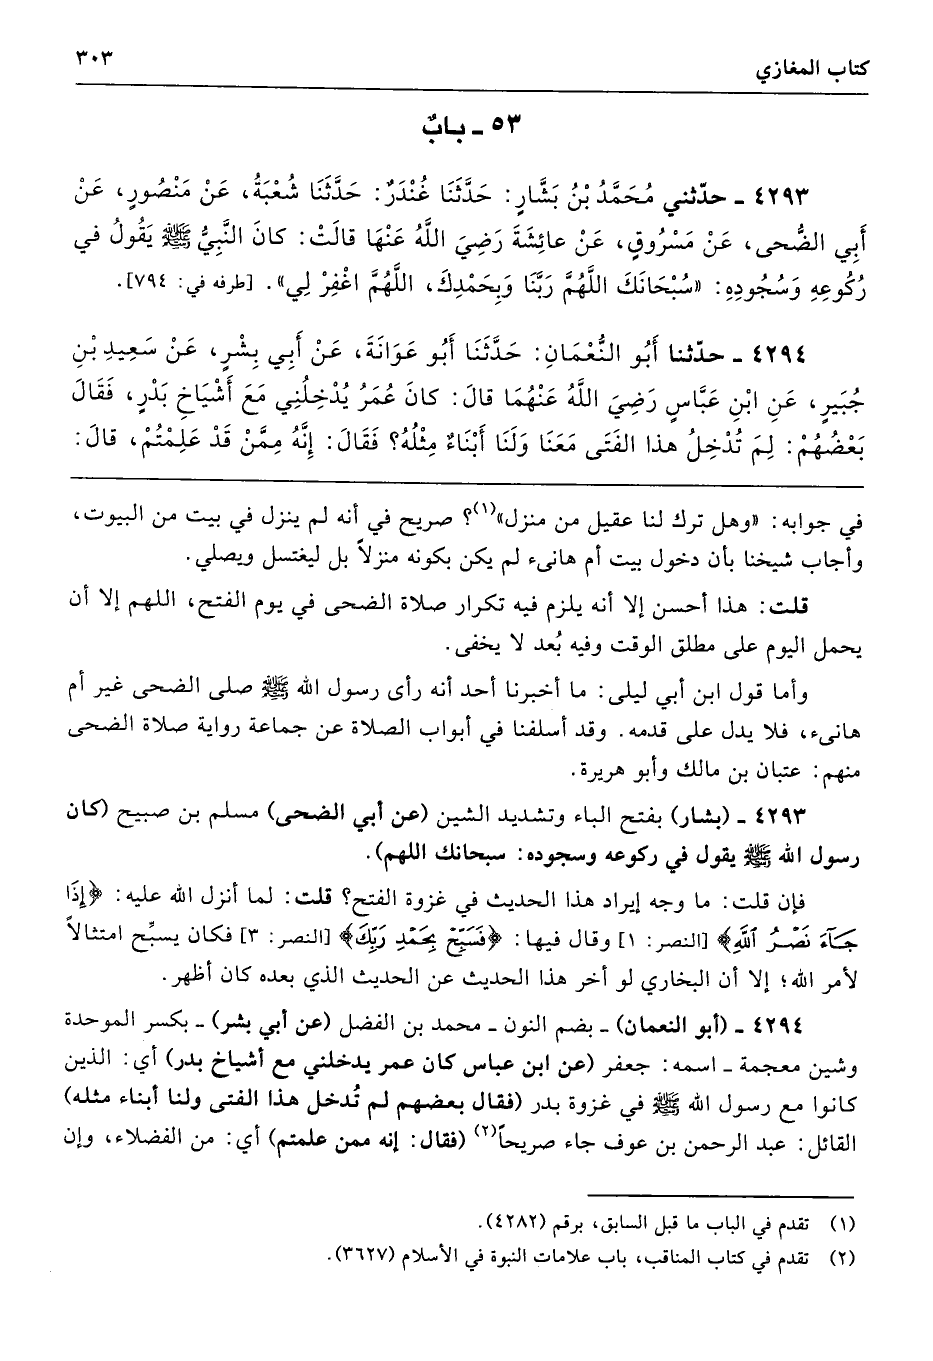 كتاب المغازي
٣٠٣
٥٣ ـ بابٌ
٤٢٩٣ ـ حدّثني مُحَمَّدُ بْنُ بَشَّارٍ: حَدَّثَنَا غُنْدَرٌ: حَدَّثَنَا شُعْبَةُ، عَنْ مَنْصُورٍ، عَنْ
أَبِي الضُّحى، عَنْ مَسْرُوقٍ، عَنْ عائِشَةَ رَضِيَ اللَّهُ عَنْهَا قالَتْ: كانَ النَّبِيُّ ﷺ يَقُولُ في
رُكُوعِهِ وَسُجُودِهِ: «سُبْحَانَكَ اللَّهُمَّ رَبَّنَا وَبِحَمْدِكَ، اللَّهُمَّ اغْفِرْ لِي». [طرفه في: ٧٩٤].
٤٢٩٤ ـ حدّثنا أَبُو النُّعْمَانِ: حَدَّثَنَا أَبُو عَوَانَةَ، عَنْ أَبِي بِشْرٍ، عَنْ سَعِيدِ بْنِ
جُبَيرٍ، عَنِ ابْنِ عَبَّاسٍ رَضِيَ اللَّهُ عَنْهُمَا قالَ: كانَ عُمَرُ يُدْخِلُنِي مَعَ أَشْيَاخِ بَدْرٍ، فَقَالَ
بَعْضُهُمْ: لِمَ تُدْخِلُ هذا الفَتَى مَعَنَا وَلَنَا أَبْنَاءٌ مِثْلُهُ؟ فَقَالَ: إِنَّهُ مِمَّنْ قَدْ عَلِمْتُمْ، قالَ:
في جوابه: «وهل ترك لنا عقيل من منزل»(١)؟ صريح في أنه لم ينزل في بيت من البيوت،
وأجاب شيخنا بأن دخول بيت أم هانىء لم يكن بكونه منزلاً بل ليغتسل ويصلي.
قلت: هذا أحسن إلا أنه يلزم فيه تكرار صلاة الضحى في يوم الفتح، اللهم إلا أن
يحمل اليوم على مطلق الوقت وفيه بُعد لا يخفى.
وأما قول ابن أبي ليلى: ما أخبرنا أحد أنه رأى رسول الله ﷺ صلى الضحى غير أم
هانىء، فلا يدل على قدمه. وقد أسلفنا في أبواب الصلاة عن جماعة رواية صلاة الضحى
منهم: عتبان بن مالك وأبو هريرة.
٤٢٩٣ ـ (بشار) بفتح الباء وتشديد الشين (عن أبي الضحى) مسلم بن صبيح (كان
رسول الله ﷺ يقول في ركوعه وسجوده: سبحانك اللهم).
فإن قلت: ما وجه إيراد هذا الحديث في غزوة الفتح؟ قلت: لما أنزل الله عليه: ﴿إِذَا
جَآءَ نَصْرُ ٱللَّهِ﴾ [النصر: ١] وقال فيها: ﴿فَسَبِّحْ بِحَمْدِ رَبِّكَ﴾ [النصر: ٣] فكان يسبِّح امتثالاً
لأمر الله؛ إلا أن البخاري لو أخر هذا الحديث عن الحديث الذي بعده كان أظهر.
٤٢٩٤ ـ (أبو النعمان) ـ بضم النون ـ محمد بن الفضل (عن أبي بشر) ـ بكسر الموحدة
وشين معجمة ـ اسمه: جعفر (عن ابن عباس كان عمر يدخلني مع أشياخ بدر) أي: الذين
كانوا مع رسول الله ﷺ في غزوة بدر (فقال بعضهم لم تُدخل هذا الفتى ولنا أبناء مثله)
القائل: عبد الرحمن بن عوف جاء صريحاً(٢) (فقال: إنه ممن علمتم) أي: من الفضلاء، وإن
(١) تقدم في الباب ما قبل السابق، برقم (٤٢٨٢).
(٢) تقدم في كتاب المناقب، باب علامات النبوة في الأسلام (٣٦٢٧).